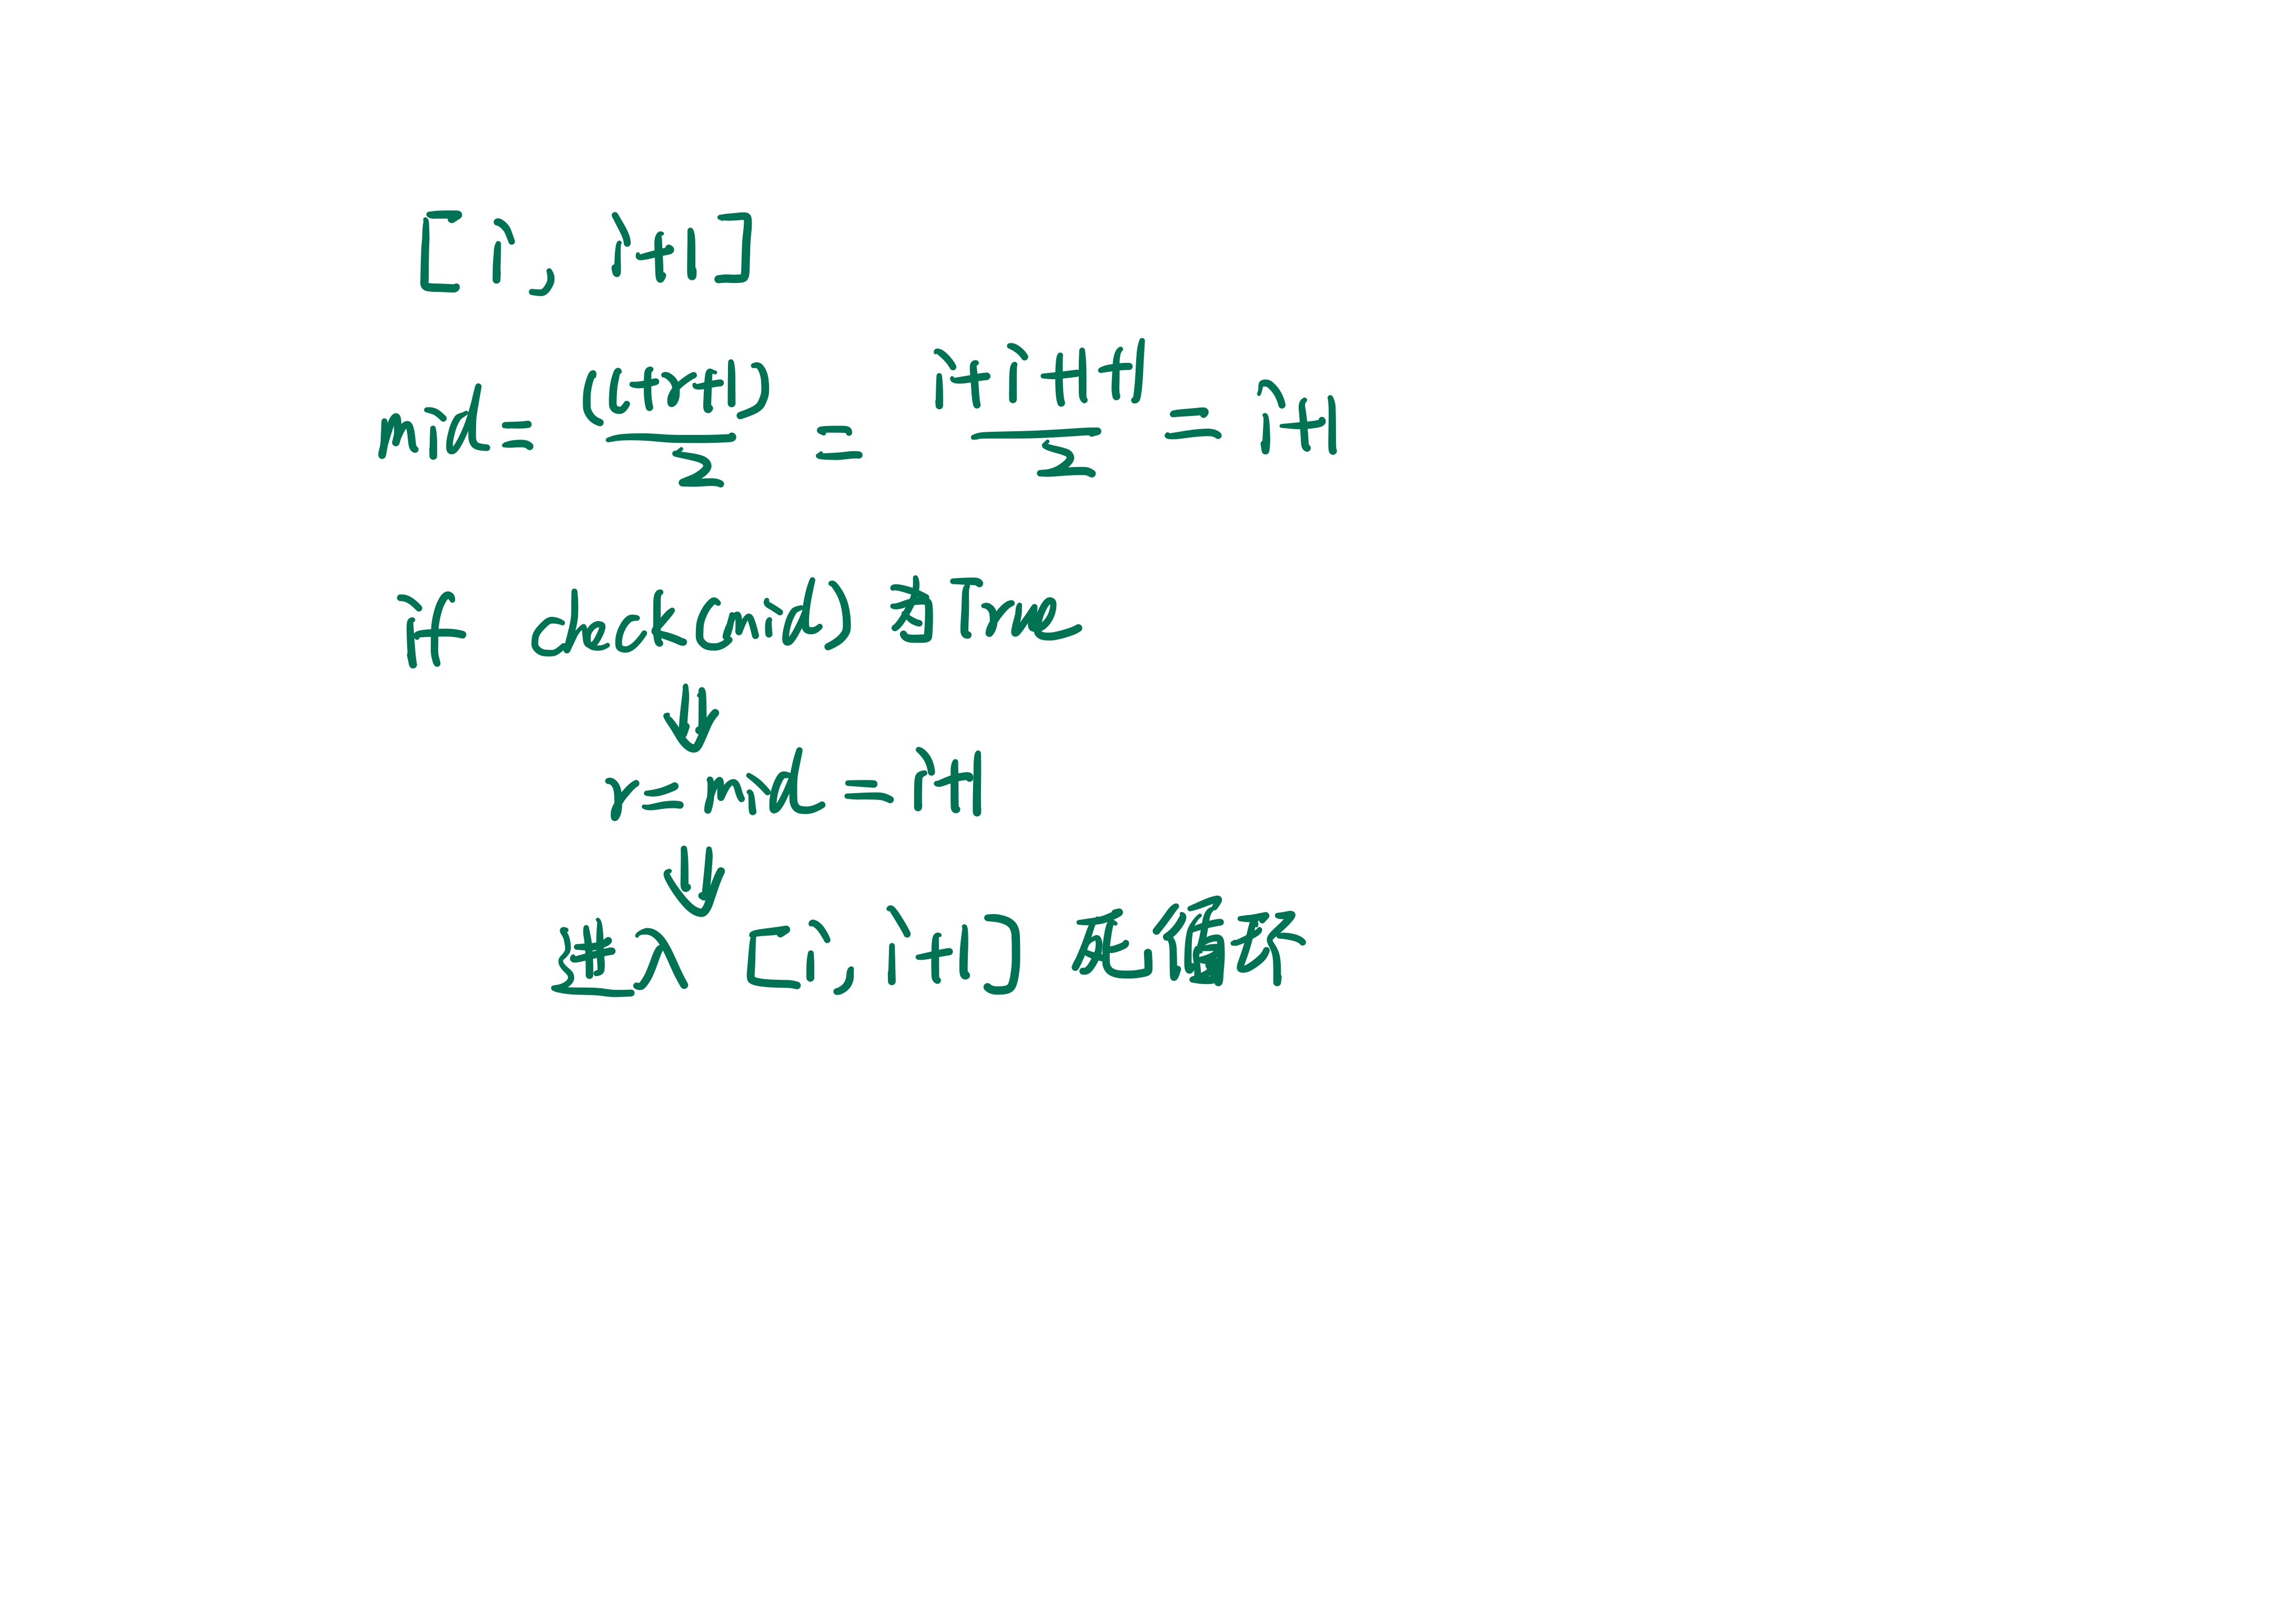 [i, i+1]
mid = (l+r+1)/2 = i+i+1+1/2 = i+1
if check(mid) 为True
⇓
r=mid=i+1
⇓
进入 [i, i+1] 死循环